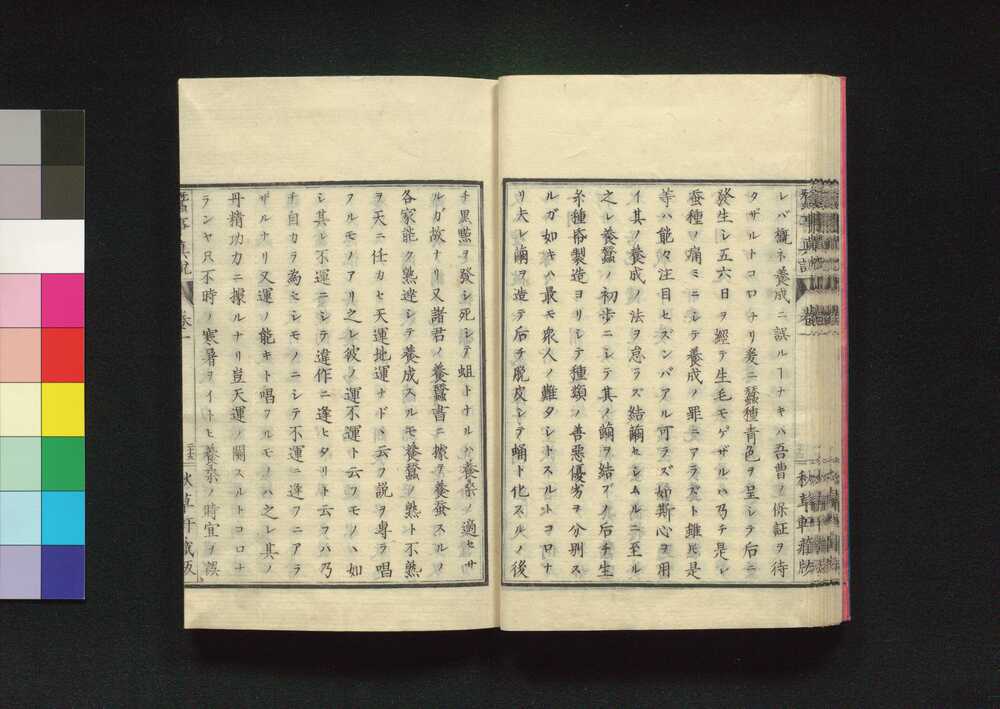 レバ概ネ養成ニ誤ルヿナキハ吾曹ノ保証ヲ待
タザルトコロナリ爰ニ蠶種青色ヲ呈シテ后ニ
發生シ五六日ヲ經テ生毛モゲザルハ乃チ是レ
蚕種ノ痛ミニシテ養成ノ罪ニアラズト雖𪜈是
等ハ能々注目セズンバアル可ラズ如斯心ヲ用
イ其ノ養成ノ法ヲ怠ラズ結繭セシムルニ至ル
之レ養蠶ノ初歩ニシテ其ノ繭ヲ結ブノ后チ生
糸種帋製造ヨリシテ種類ノ善悪優劣ヲ分別ス
ルガ如キハ最モ衆人ノ難タシトスルトコロナ
リ夫レ繭ヲ造テ后チ脱皮シテ蛹ト化スルノ後
チ黒點ヲ發シ死シテ蛆トナルハ養桒ノ適セサ
ルガ故ナリ又諸君ノ養蠶書ニ據テ養蚕スルノ
各家能ク熟達シテ養成スルモ養蠶ノ熟ト不熟
ヲ天ニ任カセ天運地運ナドヽ云フ説ヲ専ラ唱
フルモノアリ之レ彼ノ運不運ト云フモノヽ如
シ其レ不運ニシテ違作ニ逢ヒタリト云フハ乃
チ自カラ為セシモノニシテ不運ニ逢フニアラ
ザルナリ又運ノ能キト唱フルモノハ之レ其ノ
丹精功力ニ據ルナリ豈天運ノ關スルトコロナ
ランヤ只不時ノ寒暑ヲイトヒ養桒ノ時宜ヲ誤
卷一